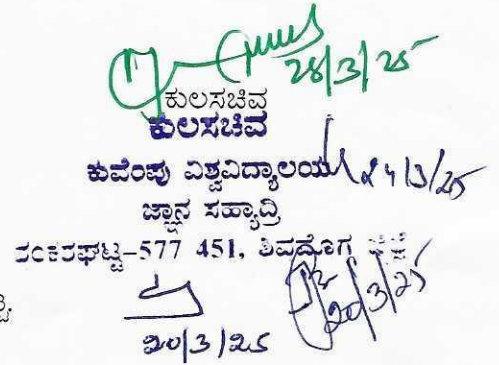 28/3/25
ಕುಲಸಚಿವ
ಕುಲಸಚಿವ
ಕುವೆಂಪು ವಿಶ್ವವಿದ್ಯಾಲಯ 24/3/25
ಜ್ಞಾನ ಸಹ್ಯಾದ್ರಿ
ಶಂಕರಘಟ್ಟ-577 451, ಶಿವಮೊಗ್ಗ
20/3/25
20/3/25